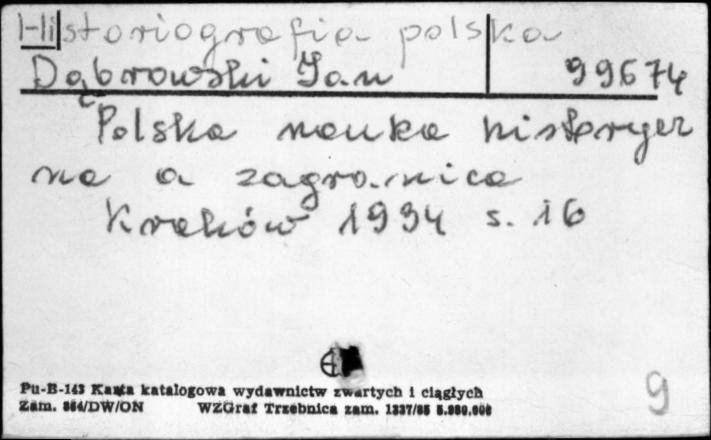 Historiografia polska
Dąbrowski Jan 99674
Polska nauka historycz
na a zagranica
Kraków 1934 s. 16
Pu-B-143 Karta katalogowa wydawnictw zwartych i ciągłych
Zam. 854/DW/ON WZGraf Trzebnica zam. 1337/85 5.980,000
9